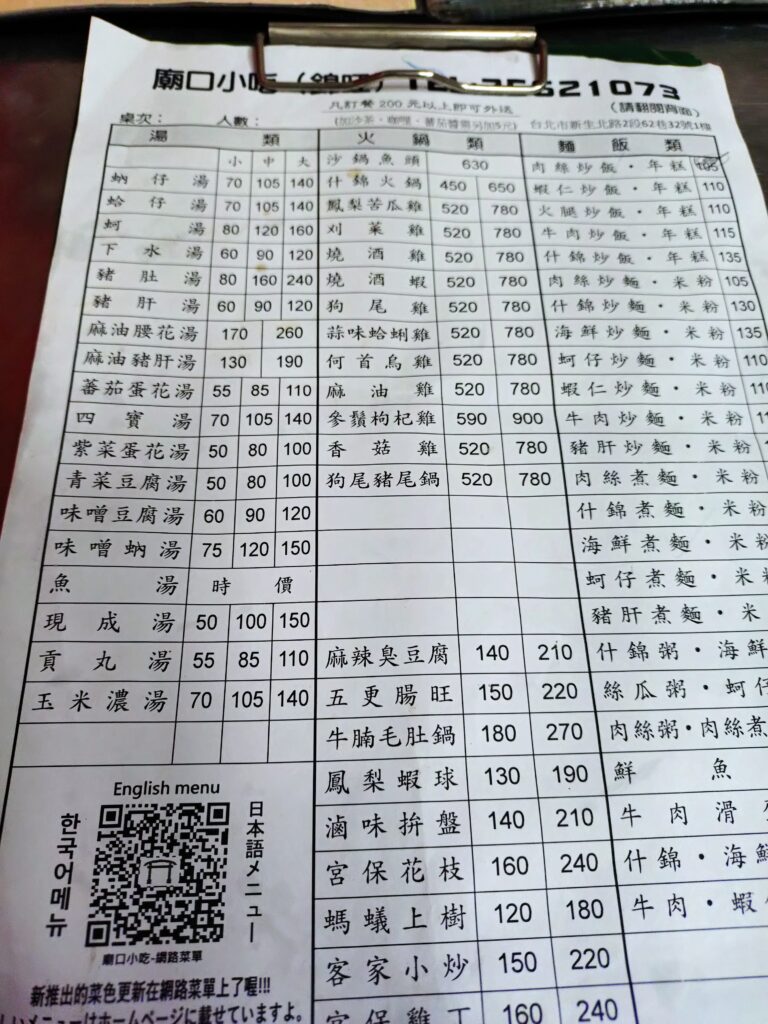 廟口小吃（錦旺）TEL:25621073
凡訂餐 200 元以上即可外送 （請翻閱背面）
桌次： 人數： （加沙茶、咖哩、蕃茄醬需另加5元） 台北市新生北路2段62巷32號1樓
湯 類
小 中 大
蚋仔湯 70 105 140
蛤仔湯 70 105 140
蚵湯 80 120 160
下水湯 60 90 120
豬肚湯 80 160 240
豬肝湯 60 90 120
麻油腰花湯 170 260
麻油豬肝湯 130 190
蕃茄蛋花湯 55 85 110
四寶湯 70 105 140
紫菜蛋花湯 50 80 100
青菜豆腐湯 50 80 100
味噌豆腐湯 60 90 120
味噌蚋湯 75 120 150
魚湯 時價
現成湯 50 100 150
貢丸湯 55 85 110
玉米濃湯 70 105 140
English menu
한국어메뉴
日本語メニュー
廟口小吃-網路菜單
新推出的菜色更新在網路菜單上了喔!!!
しいメニューはホームページに載せていますよ。
火鍋類
沙鍋魚頭 630
什錦火鍋 450 650
鳳梨苦瓜雞 520 780
刈菜雞 520 780
燒酒雞 520 780
燒酒蝦 520 780
狗尾雞 520 780
蒜味蛤蜊雞 520 780
何首烏雞 520 780
麻油雞 520 780
參鬚枸杞雞 590 900
香菇雞 520 780
狗尾豬尾鍋 520 780
麻辣臭豆腐 140 210
五更腸旺 150 220
牛腩毛肚鍋 180 270
鳳梨蝦球 130 190
滷味拚盤 140 210
宮保花枝 160 240
螞蟻上樹 120 180
客家小炒 150 220
宮保雞丁 160 240
麵飯類
肉絲炒飯・年糕 105
蝦仁炒飯・年糕 110
火腿炒飯・年糕 110
牛肉炒飯・年糕 115
什錦炒飯・年糕 135
肉絲炒麵・米粉 105
什錦炒麵・米粉 130
海鮮炒麵・米粉 135
蚵仔炒麵・米粉 110
蝦仁炒麵・米粉
牛肉炒麵・米粉
豬肝炒麵・米粉
肉絲煮麵・米粉
什錦煮麵・米粉
海鮮煮麵・米粉
蚵仔煮麵・米
豬肝煮麵・米
什錦粥・海鮮
絲瓜粥・蚵仔
肉絲粥・肉絲煮
鮮魚
牛肉滑
什錦・海鮮
牛肉・蝦